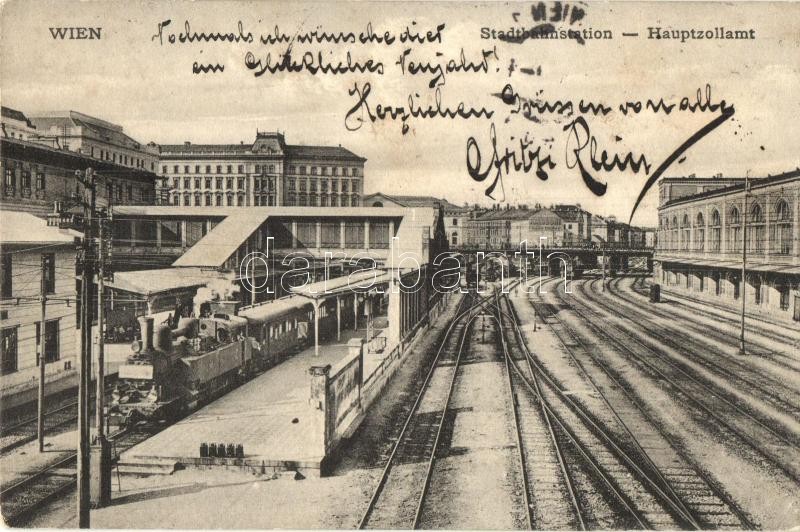 WIEN
Stadtbahnstation — Hauptzollamt
WIEN
Nochmals ich wünsche dir
ein Glückliches Neujahr!
Herzlichen Grüssen von alle
Fritzi Klein
darabanth